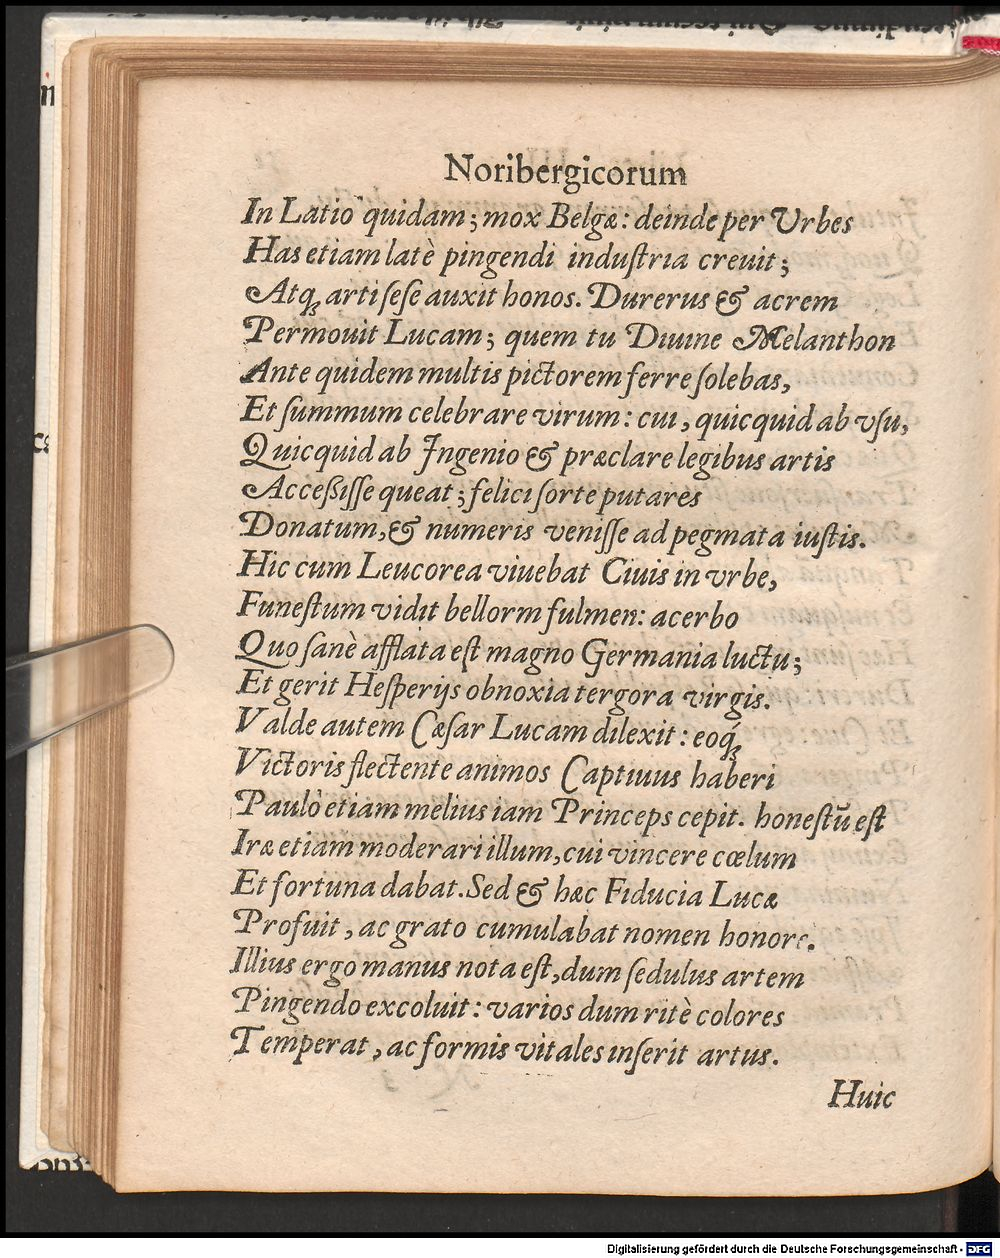 Noribergicorum
In Latio quidam; mox Belgæ: deinde per Vrbes
Has etiam latè pingendi induſtria creuit;
Atq́ꝫ arti ſeſe auxit honos. Durerus & acrem
Permouit Lucam; quem tu Diuine Melanthon
Ante quidem multis pictorem ferre ſolebas,
Et ſummum celebrare virum: cui, quicquid ab vſu,
Quicquid ab Ingenio & præclare legibus artis
Acceßiſſe queat; felici ſorte putares
Donatum, & numeris veniſſe ad pegmata iuſtis.
Hic cum Leucorea viuebat Ciuis in vrbe,
Funeſtum vidit bellorm fulmen: acerbo
Quo ſanè afflata eſt magno Germania luctu;
Et gerit Heſperijs obnoxia tergora virgis.
Valde autem Cæſar Lucam dilexit: eoq́ꝫ
Victoris flectente animos Captiuus haberi
Paulò etiam melius iam Princeps cepit. honeſtū eſt
Iræ etiam moderari illum, cui vincere cœlum
Et fortuna dabat. Sed & hæc Fiducia Lucæ
Profuit, ac grato cumulabat nomen honore.
Illius ergo manus nota eſt, dum ſedulus artem
Pingendo excoluit: varios dum ritè colores
Temperat, ac formis vitales inſerit artus.
Huic
Digitalisierung gefördert durch die Deutsche Forschungsgemeinschaft - DFG